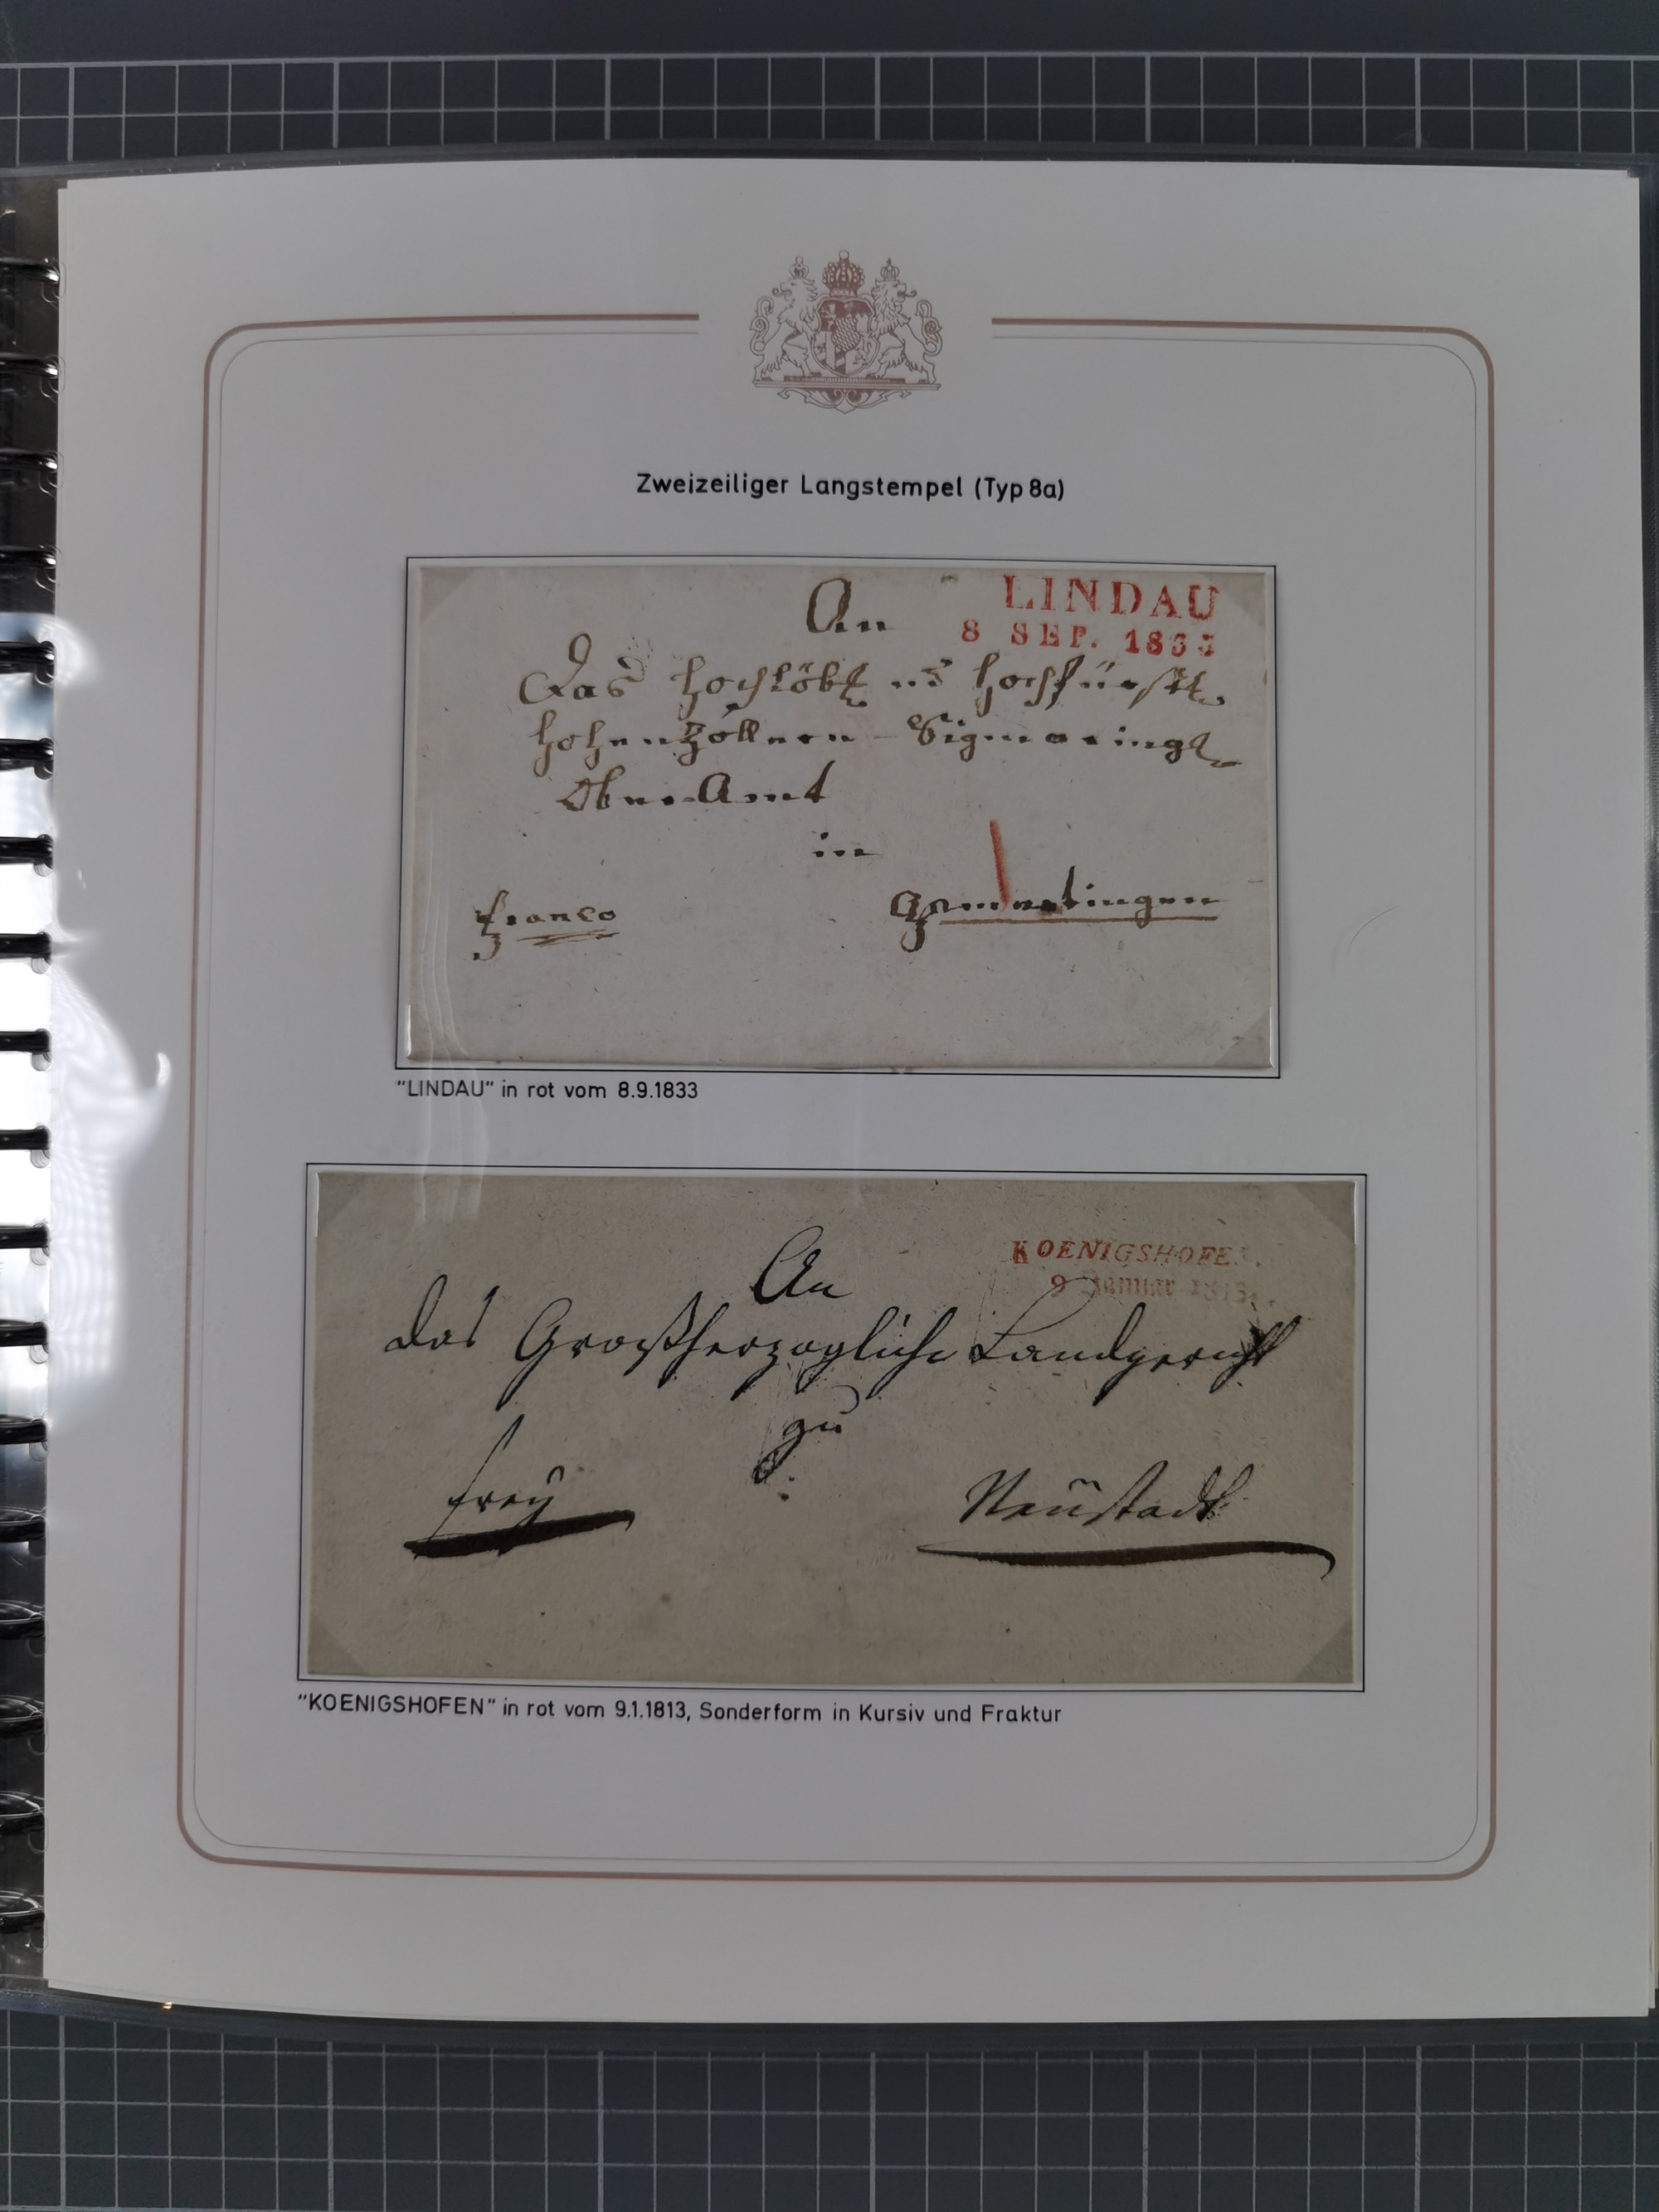 Zweizeiliger Langstempel (Typ 8a)
LINDAU
8 SEP. 1833
An
Das hochlöbl. und hochfürstl.
Hohenzollern-Sigmaringl.
Ober-Amt
in
franco
Gammertingen
"LINDAU" in rot vom 8.9.1833
KOENIGSHOFEN.
9 Januar 1813.
An
das Großherzogliche Landgericht
zu
frey
Neustadt
"KOENIGSHOFEN" in rot vom 9.1.1813, Sonderform in Kursiv und Fraktur